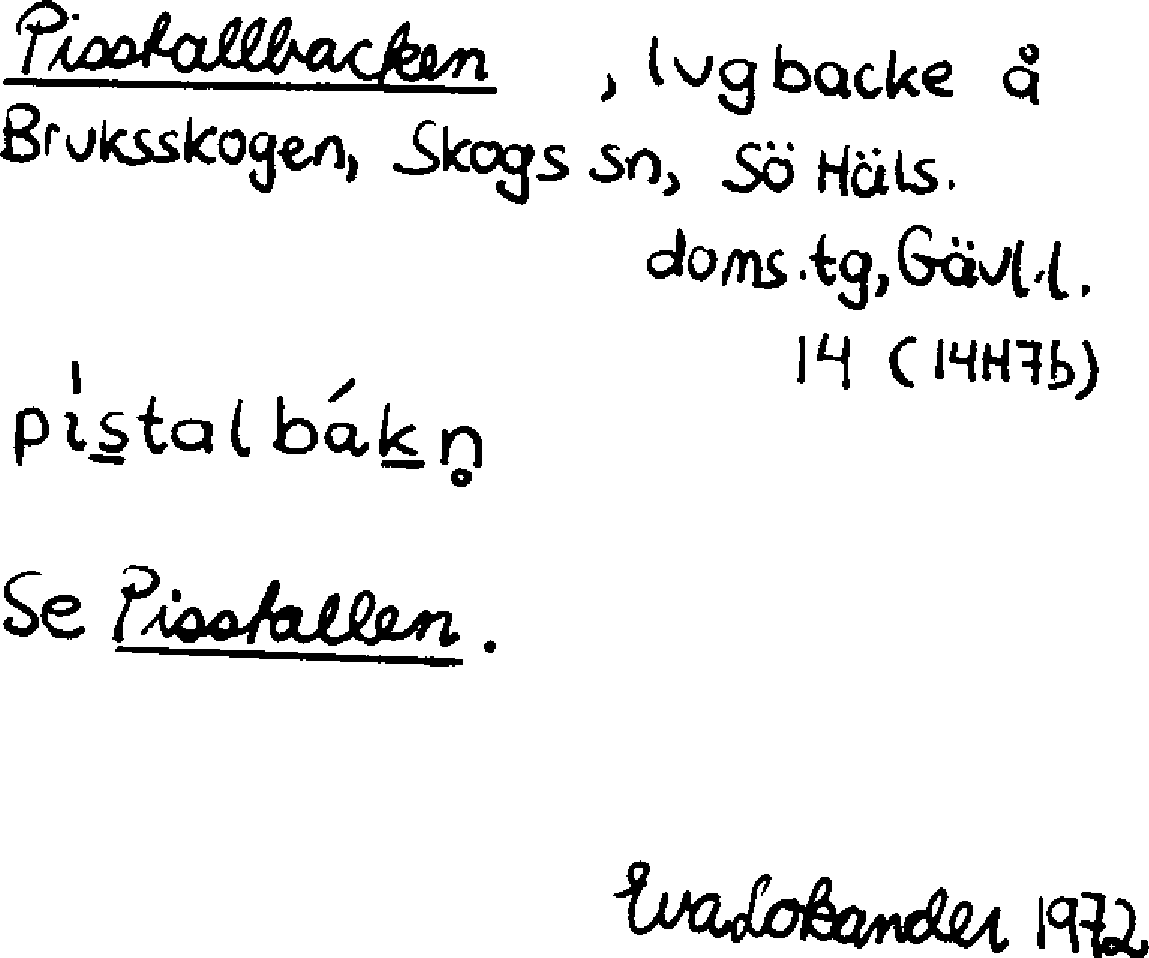 Pisstallbacken, lvgbacke å
Bruksskogen, Skogs sn, Sö Häls.
doms.tg, Gävl.l.
14 (14H7b)
pı̍s̲talbák̲n̥
Se Pisstallen.
Eva Lokander 1972